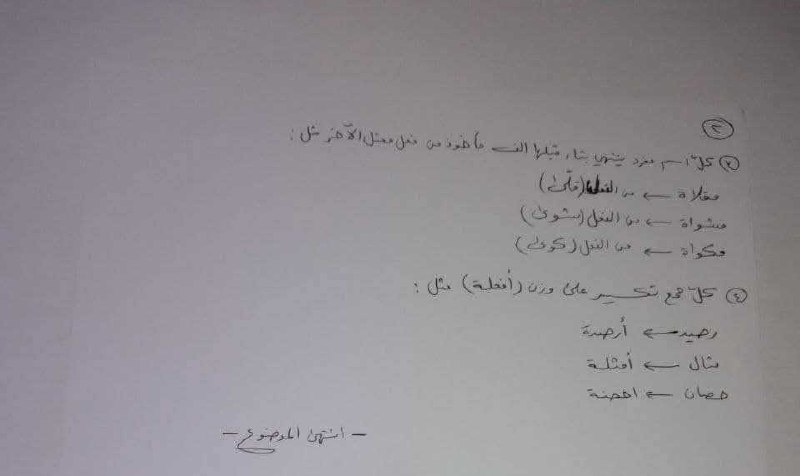 ٢
٣ كل اسم مفرد ينتهي بتاء قبلها الف مأخوذ من فعل معتل الآخر مثل :
مقلاة ← من الفعل (قلى)
مشواة ← من الفعل (شوى)
مكواة ← من الفعل (كوى)
٤ كل جمع تكسير على وزن (أفعلة) مثل :
رصيد ← أرصدة
مثال ← أمثلة
حصان ← احصنة
- انتهى الموضوع -